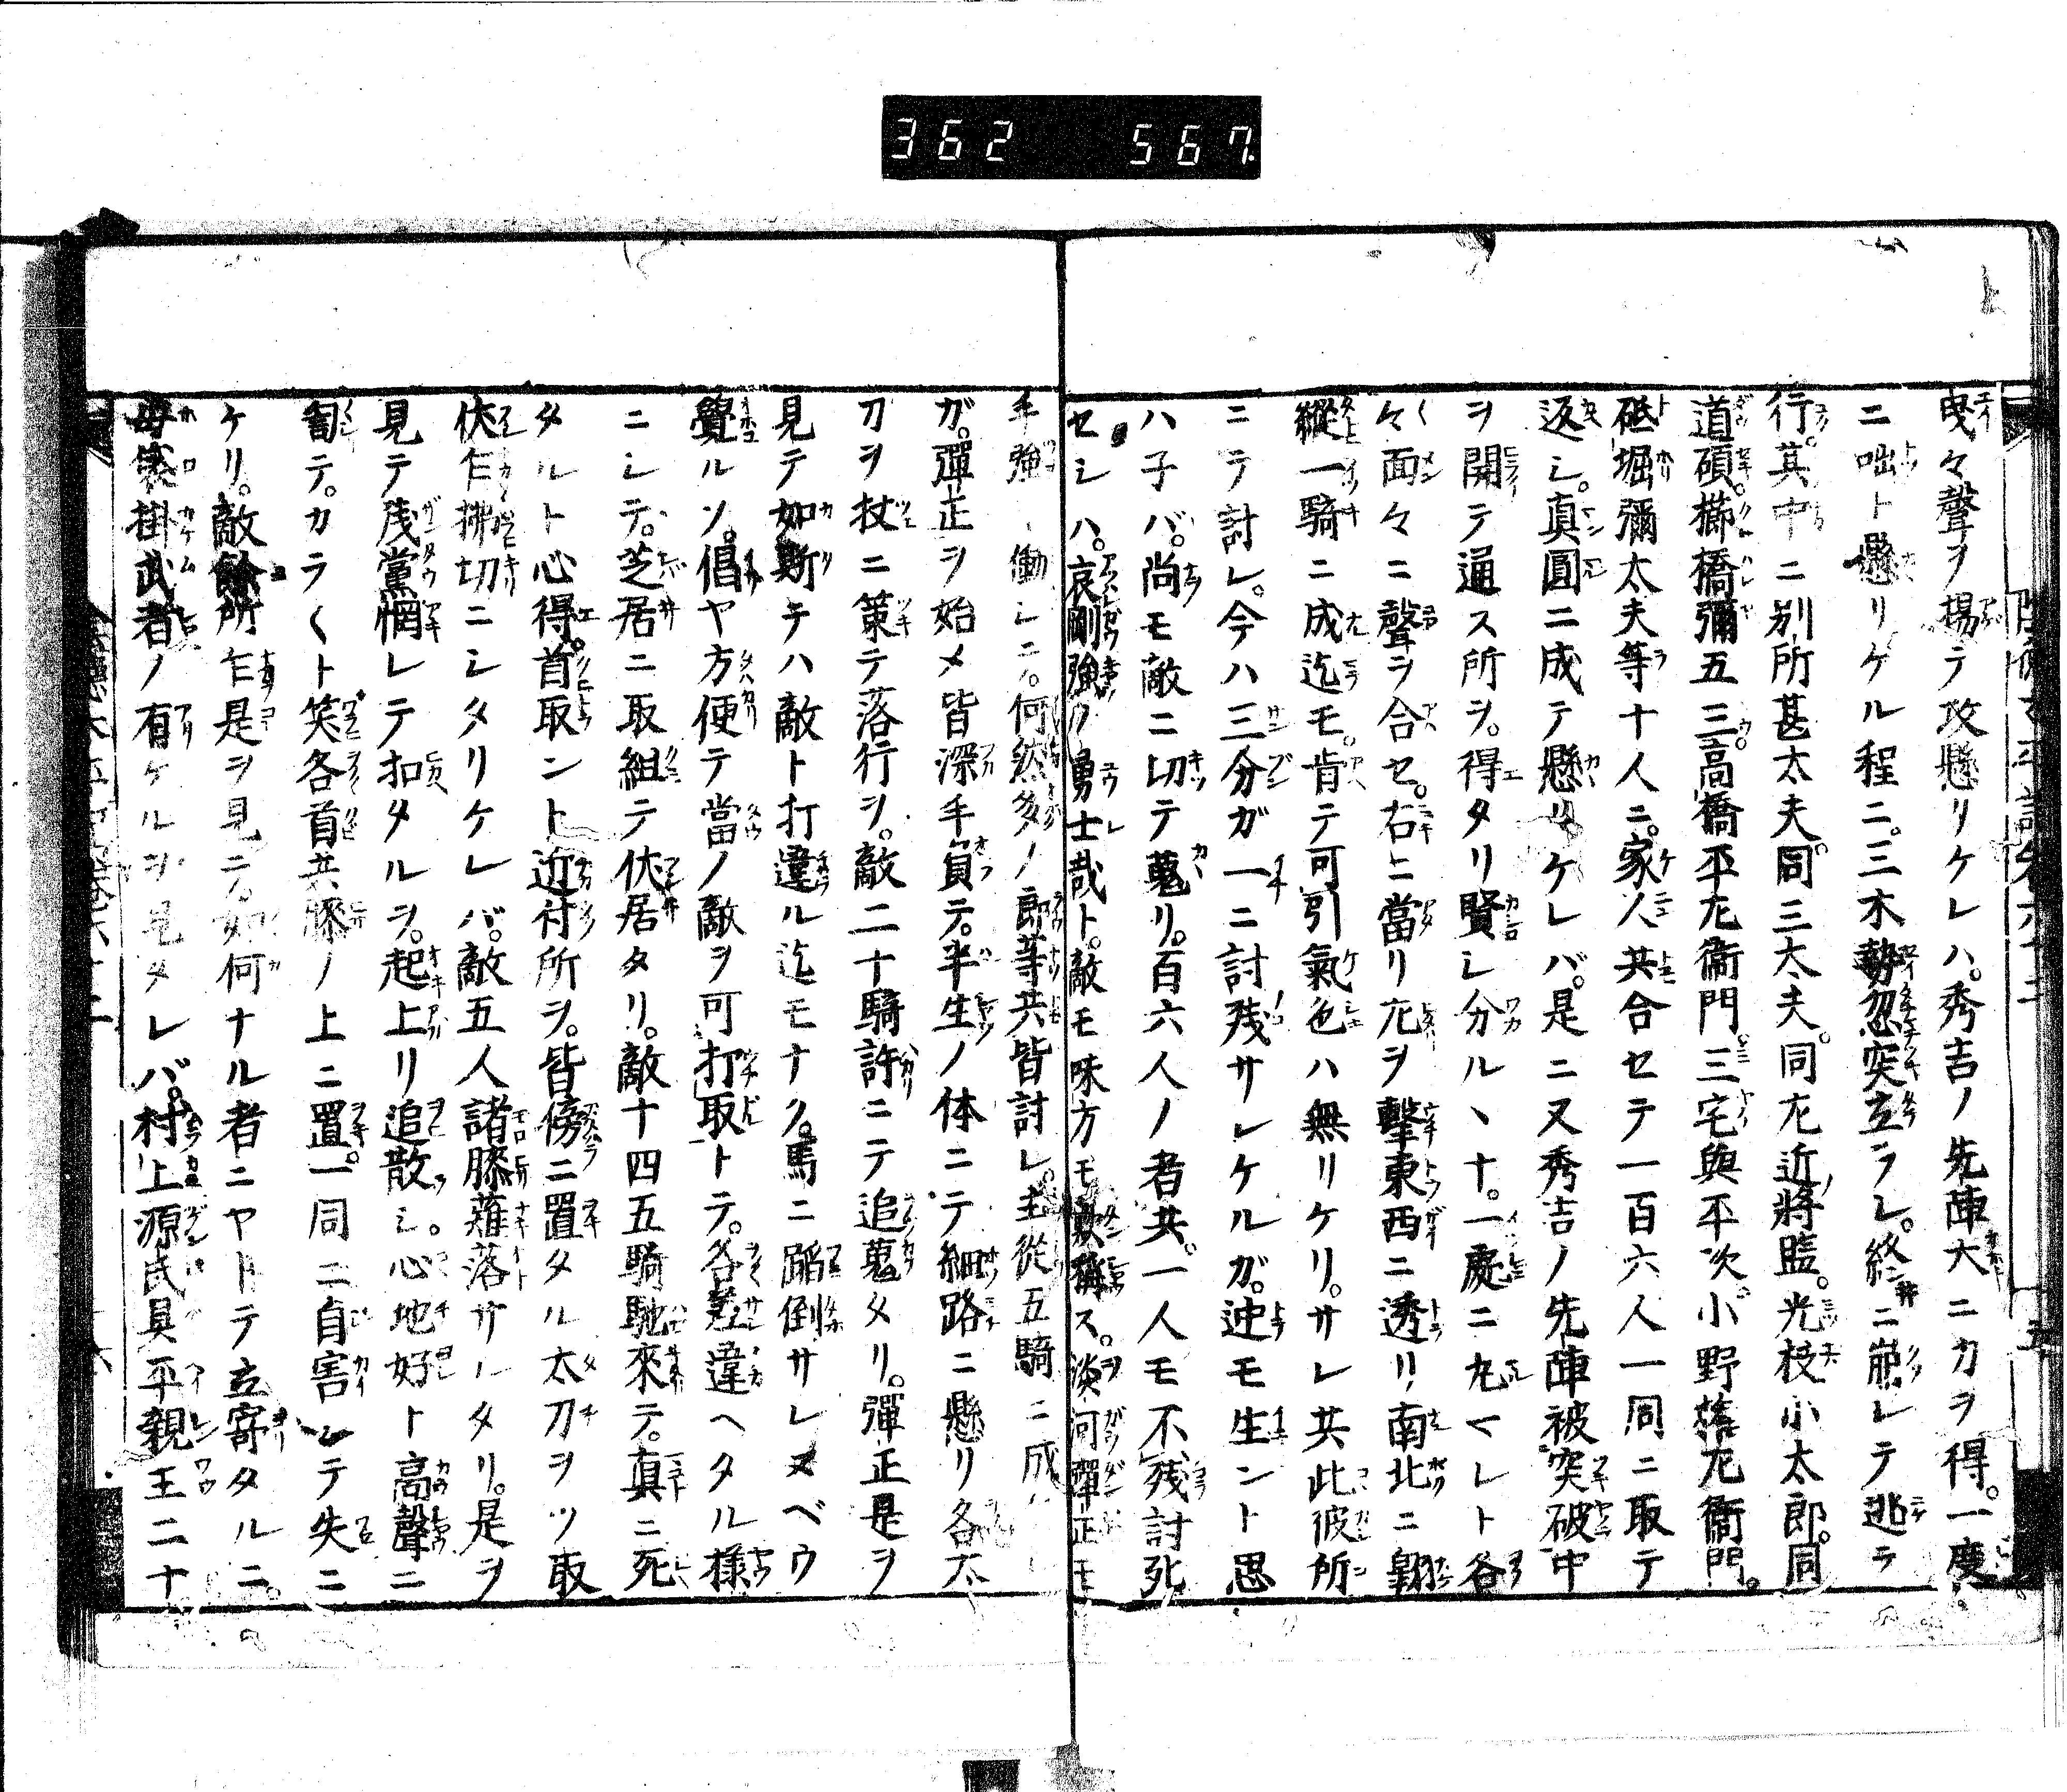 362 567
曳々聲ヲ揚テ攻懸リケレハ。秀吉ノ先陣大ニカヲ得。一度
ニ咄ト懸リケル程ニ。三木勢忽突立ラレ。終ニ崩レテ逃テ
行。其中ニ別所甚太夫。同三太夫。同左近將監。光枝小太郎。同
道碩。櫛橋彌五三。高橋平左衞門。三宅與平次。小野 左衞門。
砥堀彌太夫等十人ニ。家人共合セテ一百六人一同ニ取テ
返シ。真圓ニ成テ懸リケレバ。是ニ又秀吉ノ先陣被突破中
ヲ開テ通ス所ヲ。得タリ賢シ分ルヽナ。一處ニ丸マレト各
々面々ニ聲ヲ合セ。右ニ當リ左ヲ擊東西ニ透リ南北ニ翔
縱一騎ニ成迄モ。肯テ可引氣色ハ無リケリ。サレ共此彼所
ニテ討レ。今ハ三分ガ一ニ討殘サレケルガ。迚モ生ント思
ハ子バ。尚モ敵ニ切テ蒐リ。百六人ノ者共。一人モ不殘討死
セシハ。哀剛強ノ勇士哉ト。敵モ味方モ歎稱ス。淡河彈正モ
手強ク働シニ。何然多ノ郎等共皆討レ。主從五騎ニ成
ガ。彈正ヲ始メ皆深手負テ。半生ノ体ニテ細路ニ懸リ各太
刀ヲ杖ニ策テ落行ヲ。敵二十騎許ニテ追蒐タリ。彈正是ヲ
見テ如斯テハ敵ト打違ル迄モナク。馬ニ蹈倒サレヌベウ
覺ルソ。倡ヤ方便テ當ノ敵ヲ可打取トテ。各差違ヘタル樣
ニシテ。芝居ニ取組テ伏居タリ。敵十四五騎馳來テ。真ニ死
タルト心得。首取ント近付所ヲ。皆傍ニ置タル太刀ヲツ取
伏乍拂切ニシタリケレバ。敵五人諸膝薙落サルタリ。是ヲ
見テ殘黨惘レテ扣タルヲ。起上リ追散シ。心地好ト高聲ニ
割テ。カラ〱ト笑各首共膝ノ上ニ置。一同ニ自害シテ失ニ
ケリ。敵餘所乍是ヲ見ニ。如何ナル者ニヤトテ立寄タルニ。
母衣掛武者ノ有ケルヲ見タレバ。村上源氏具平親王二十